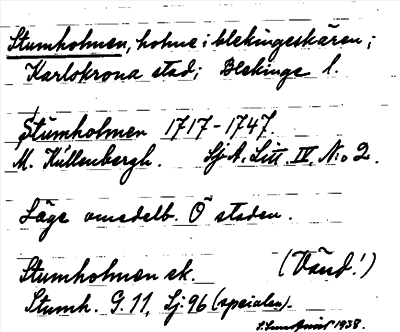 Stumholmen, holme i blekingeskären;
Karlskrona stad; Blekinge l.
Stumholmen 1717-1747.
M. Küllenbergh. Sj A, Litt. IV, N:o 2.
Läge omedelb. Ö staden.
Stumholmen sk. (Vänd!)
Stumh. G. 11, Sj 96 (specialen).
1938.